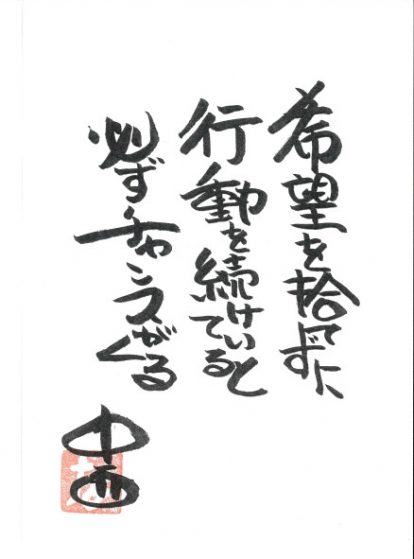 希望を捨てずに
行動を続けていると
必ずチャンスがくる